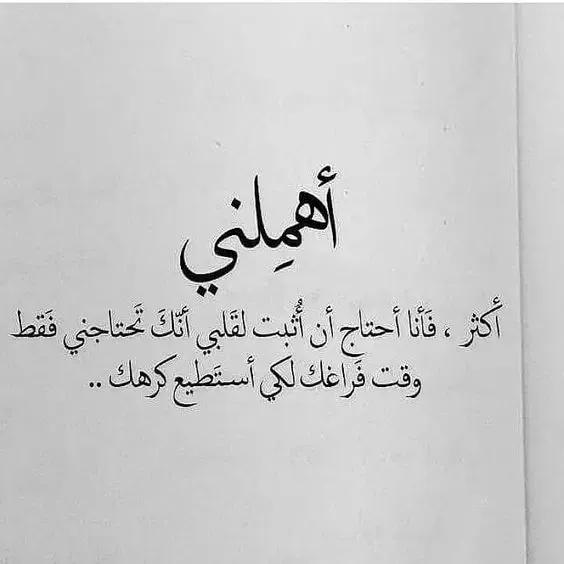 أهمِلني
أَكثر ، فَأنا أحتاج أن أُثبت لقَلبي أنّكَ تَحتاجني فَقط
وقت فَراغك لكي أستَطيع كرهك ..